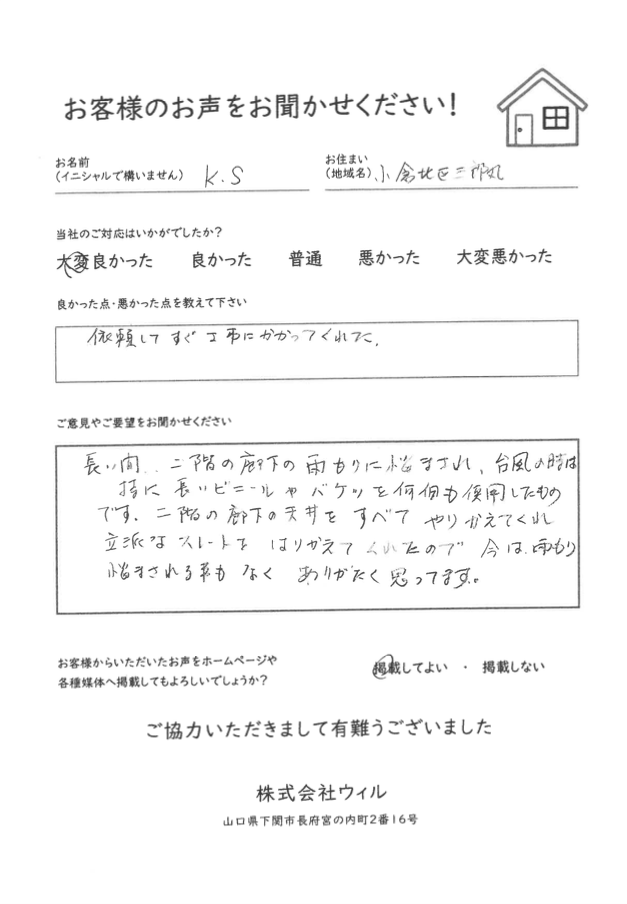 お客様のお声をお聞かせください!
お名前
(イニシャルで構いません) K.S
お住まい
(地域名) 小倉北区三郎丸
当社のご対応はいかがでしたか?
大変良かった 良かった 普通 悪かった 大変悪かった
良かった点・悪かった点を教えて下さい
依頼してすぐ工事にかかってくれた.
ご意見やご要望をお聞かせください
長い間、二階の廊下の雨もりに悩まされ、台風の時は
特に長いビニールやバケツを何個も使用したもの
です. 二階の廊下の天井をすべてやりかえてくれ
立派なスレートをはりかえてくれたので今は、雨もり
悩まされる事もなくありがたく思ってます。
お客様からいただいたお声をホームページや
各種媒体へ掲載してもよろしいでしょうか?
掲載してよい ・ 掲載しない
ご協力いただきまして有難うございました
株式会社ウィル
山口県下関市長府宮の内町2番16号